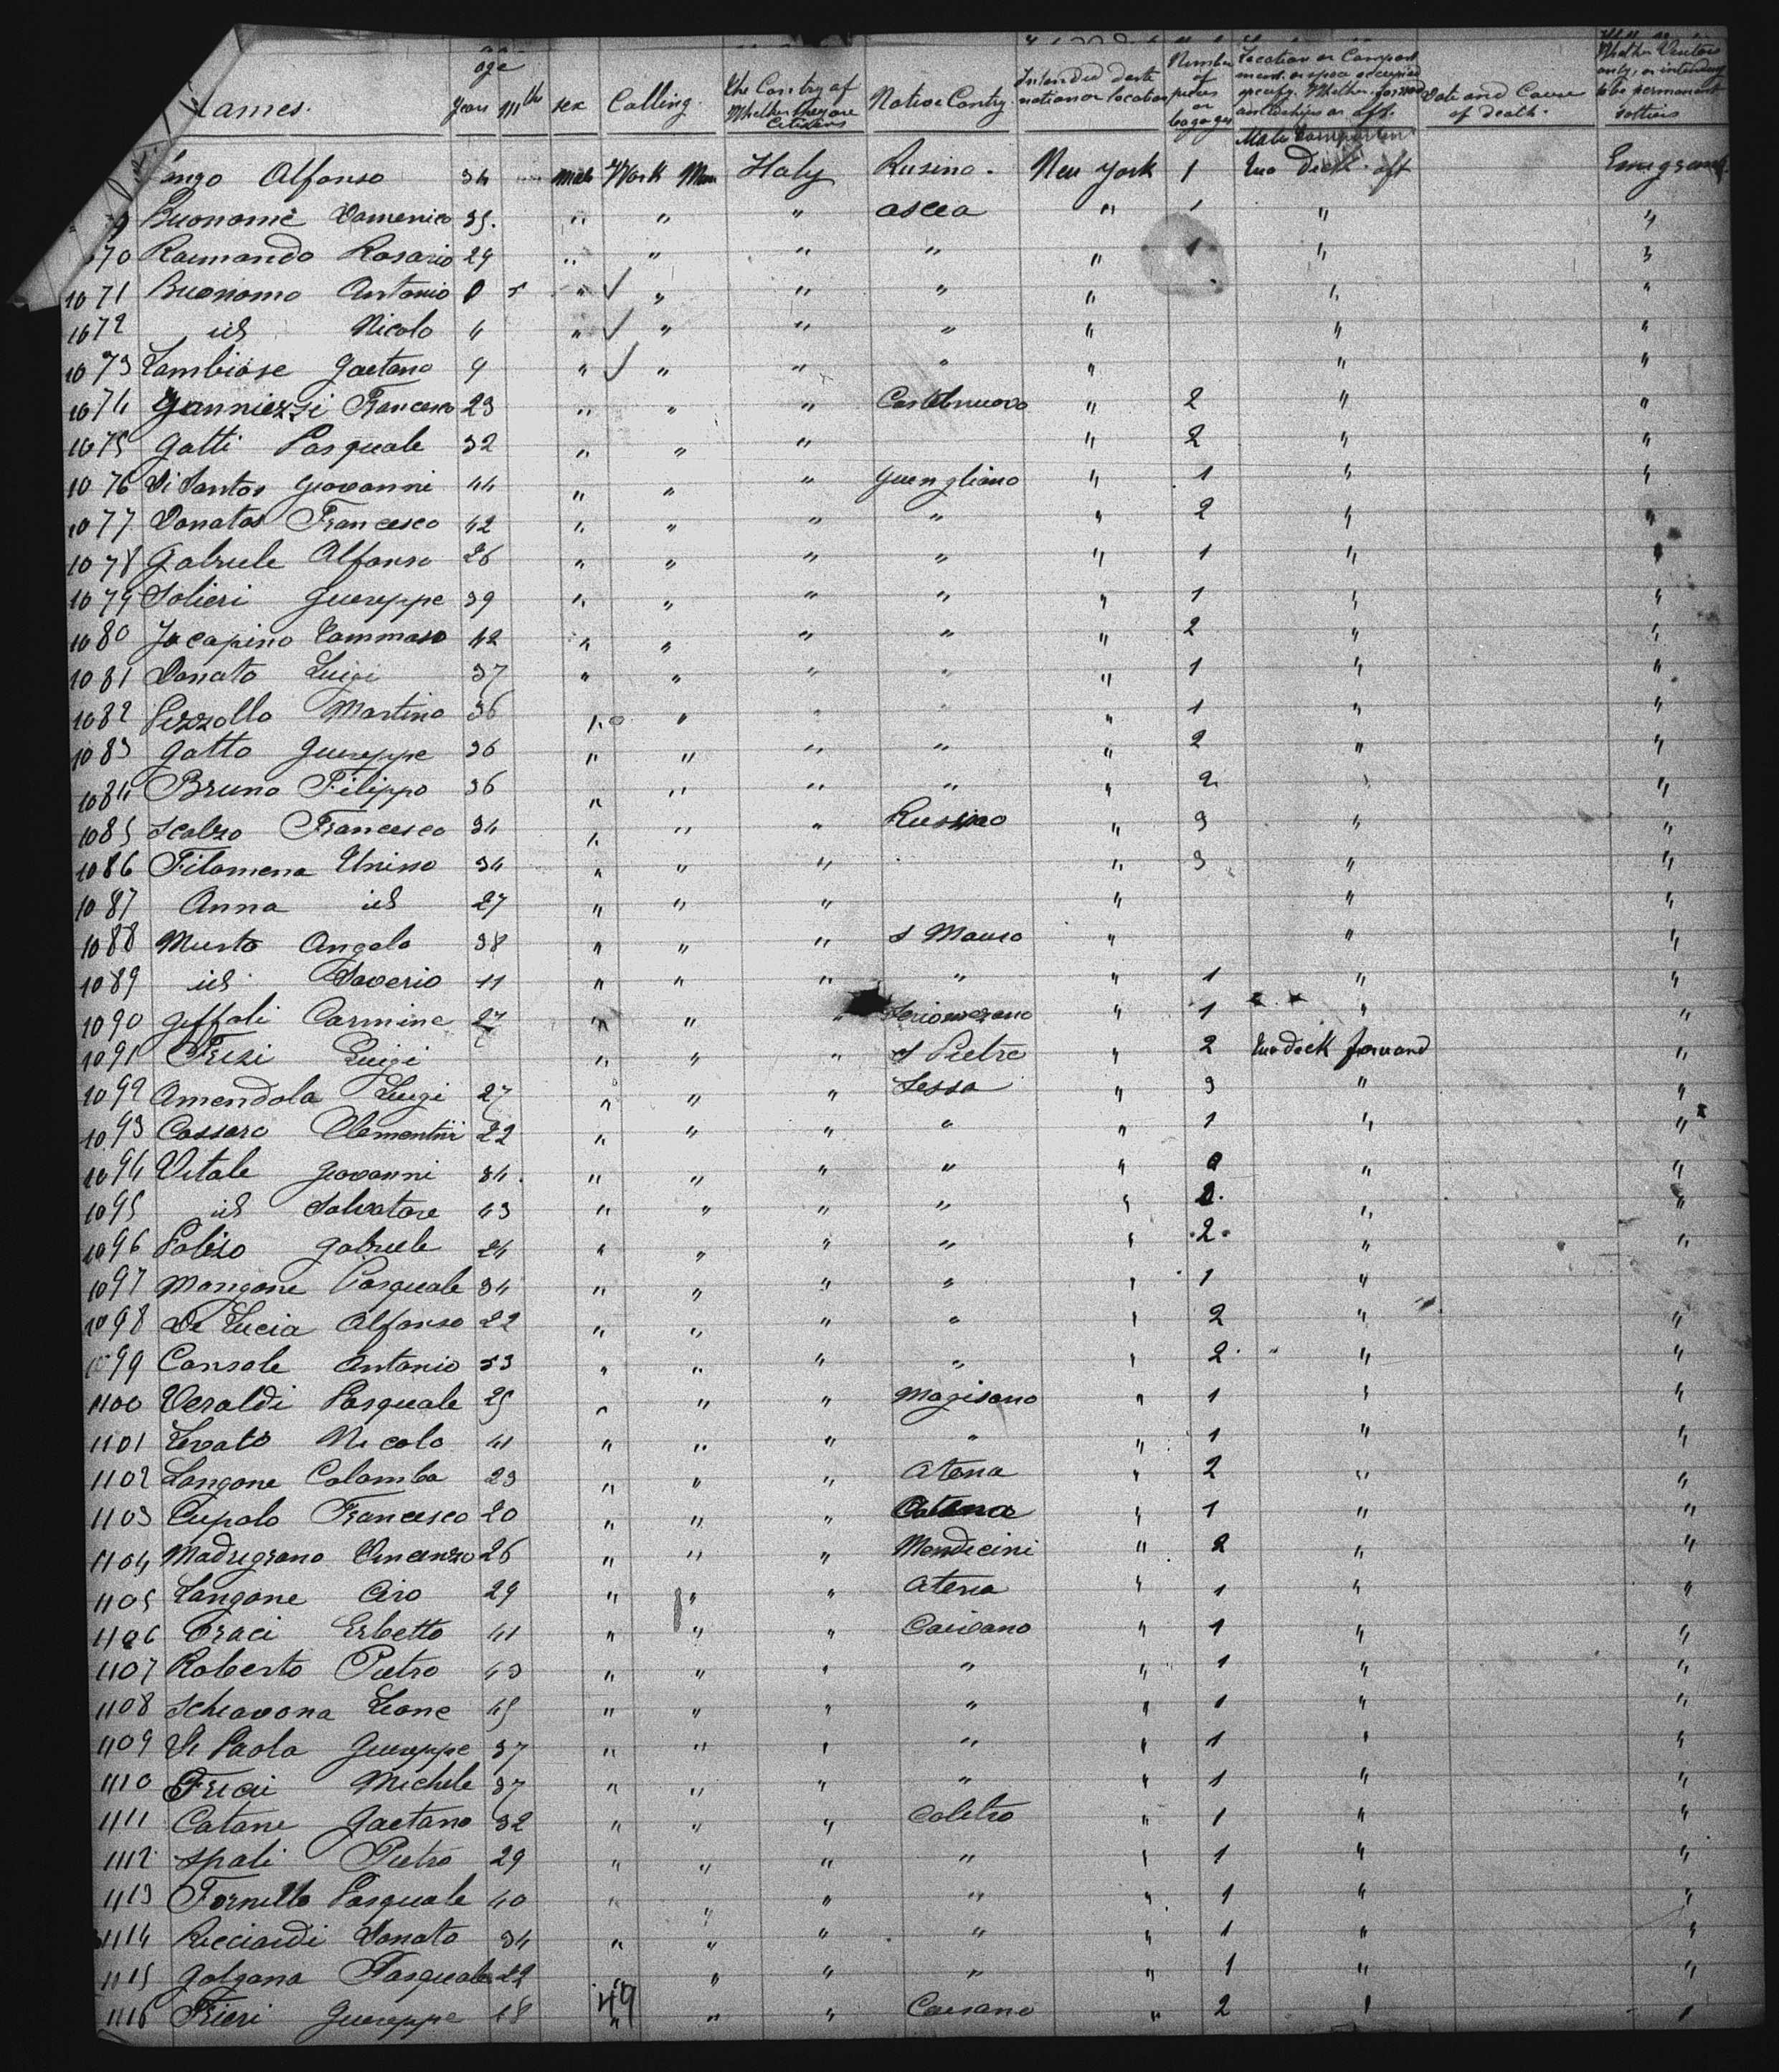 Names. age Years Mths sex Calling. The Contry of Whether they are Citizens Native Contry Intended desti nation or location Number of pieces or bagages Location or Compart ment or space occupied Date and Cause of death. Whether Visitors only, or intending to be permanent settlers
Alfonso 34 male Work Man Italy Rusino. New York 1 Two Deck aft Emigrant
9 Buonomè Domenico 35. " " " ascea " 1 " "
70 Raimondo Rosario 29 " " " " " 1 " "
1071 Buonomo Antonio 0 5 " " " " " " "
1072 id Nicolo 4 " " " " " " "
1073 Lambiase Gaetano 9 " " " " " " "
1074 Gianniezzi Francesco 23 " " " Castelnuovo " 2 " "
1075 Gatti Pasquale 32 " " " " 2 " "
1076 Di Santos Giovanni 44 " " " Guengliano " 1 " "
1077 Donatos Francesco 42 " " " " " 2 " "
1078 Gabriele Alfonso 26 " " " " " 1 " "
1079 Solieri Giuseppe 39 " " " " " 1 " "
1080 Jacapino Tommaso 42 " " " " " 2 " "
1081 Donato Luigi 37 " " " " " 1 " "
1082 Pezzollo Martino 36 " " " " " 1 " "
1083 Gatto Giuseppe 36 " " " " " 2 " "
1084 Bruno Filippo 36 " " " " " 2 " "
1085 Scalzo Francesco 34 " " " " 3 " "
1086 Filomena 34 " " " " 3 " "
1087 Anna id 27 " " " " " "
1088 Musto Angelo 38 " " " S Mauro " " "
1089 id Saverio 11 " " " " " 1 " "
1090 Geffoli Carmine 27 " " " " 1 " "
1091 Frizi Luigi " " " S Pietro " 2 Two deck forward "
1092 Amendola Luigi 27 " " " Sessa " 3 " "
1093 Cassaro 22 " " " " " 1 " "
1094 Vitale Giovanni 34. " " " " " " "
1095 id Salvatore 43 " " " " " 2. " "
1096 Poliso Gabriele 24 " " " " " 2. " "
1097 Mangone Pasquale 34 " " " " " 1 "
1098 De Lucia Alfonso 22 " " " " " 2 " "
1099 Console Antonio 53 " " " " " 2 " "
1100 Veraldi Pasquale 25 " " " Magisano " 1 " "
1101 Levato Nicolo 41 " " " " " 1 " "
1102 Langone Colomba 23 " " " Atena " 2 " "
1103 Cupolo Francesco 20 " " " " 1 " "
1104 Madregrano Vincenzo 26 " " " Mendicini " 2 " "
1105 Langone Ciro 29 " " " Atena " 1 " "
1106 Braci Erbetto 41 " " " Caivano " 1 " "
1107 Roberto Pietro 43 " " " " " 1 " "
1108 Schiavona Leone 45 " " " " " 1 " "
1109 Di Paola Giuseppe 37 " " " " " 1 " "
1110 Michele 37 " " " " " 1 " "
1111 Catane Gaetano 32 " " " Calitro " 1 " "
1112 Spali Pietro 29 " " " " " 1 " "
1113 Fornillo Pasquale 40 " " " " " 1 " "
1114 Ricciardi Donato 34 " " " " " 1 " "
1115 Galgana Pasquale 22 " " " " " 1 " "
1116 Frieri Giuseppe 18 49 " " " Caesano " 2 " "